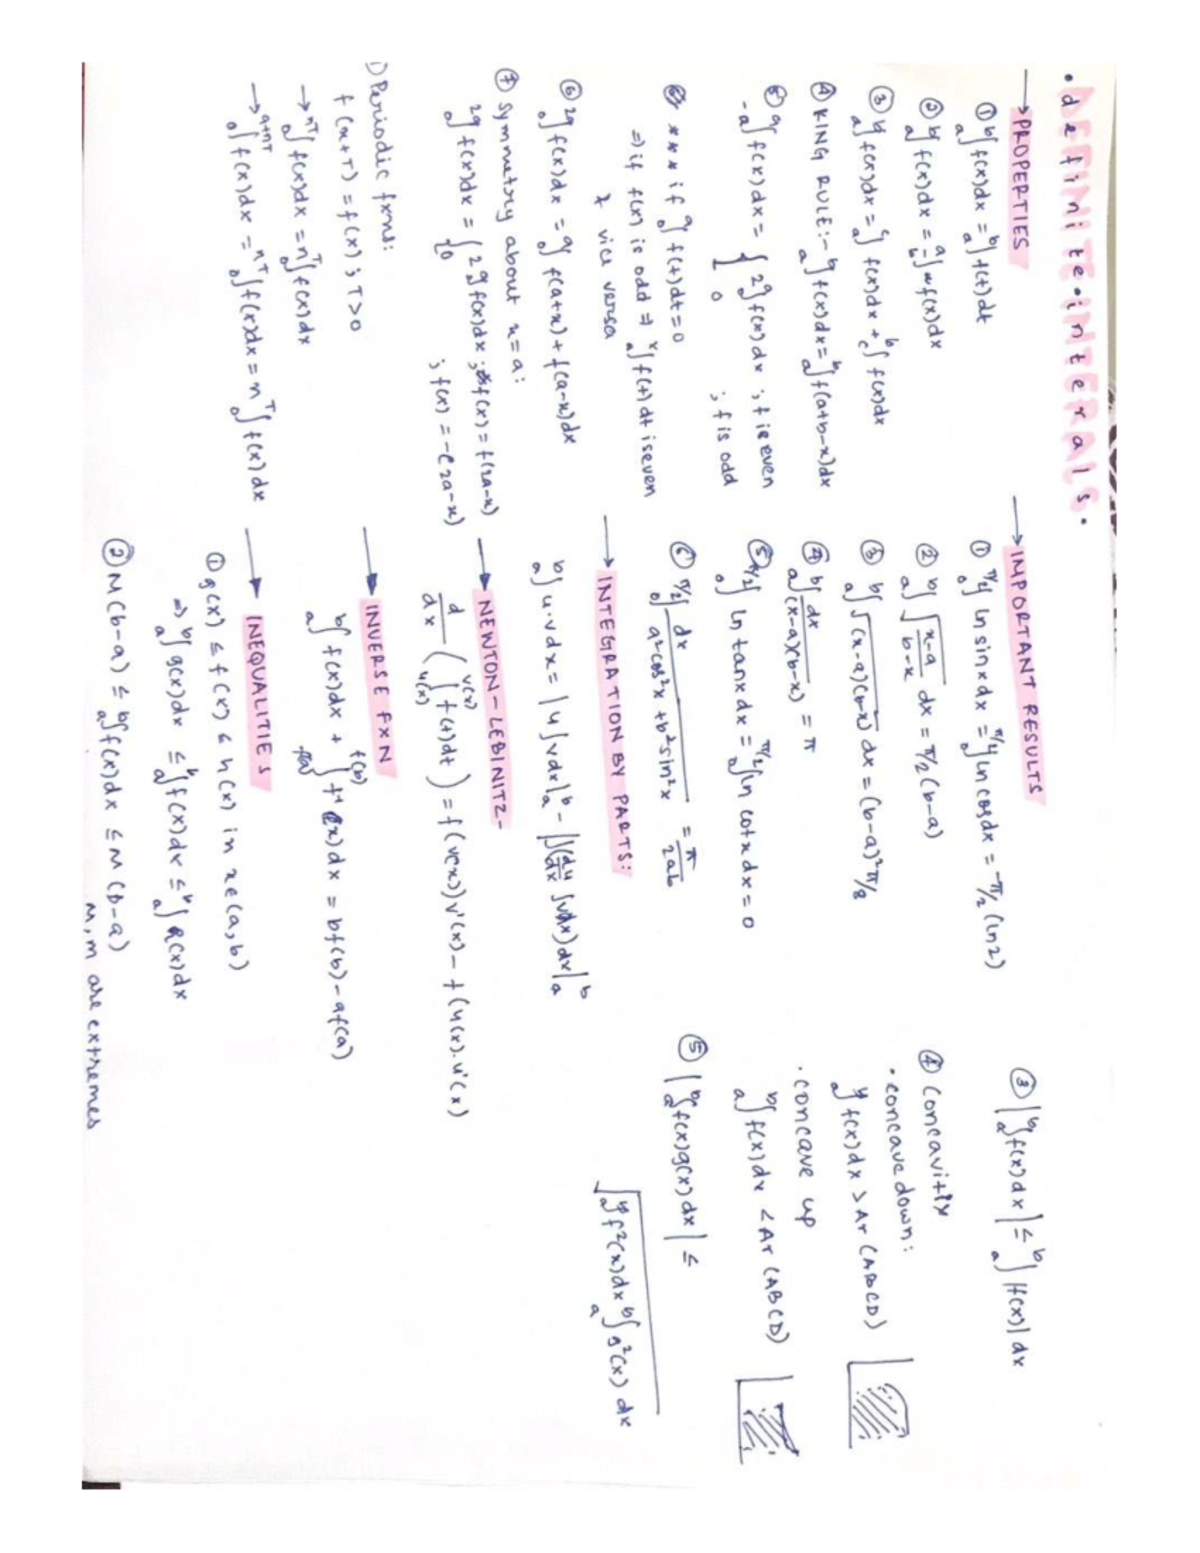 DEFINITE INTERALS.
• definite • interals.
→ PROPERTIES
① ₐ∫ᵇ f(x)dx = ₐ∫ᵇ f(t)dt
② ₐ∫ᵇ f(x)dx = -_b∫ᵃ f(x)dx
③ ₐ∫ᵇ f(x)dx = ₐ∫ᶜ f(x)dx + _c∫ᵇ f(x)dx
④ KING RULE:- ₐ∫ᵇ f(x)dx = ₐ∫ᵇ f(a+b-x)dx
⑤ ₋ₐ∫ᵃ f(x)dx = { 2 ₀∫ᵃ f(x)dx ; f is even
0 ; f is odd
⑥ *** if ₀∫ᵃ f(t)dt = 0
⇒ if f(x) is odd ⇒ ₐ∫ˣ f(t)dt is even
& vice versa
⑥ ₀∫²ᵃ f(x)dx = ₀∫ᵃ f(a+x) + f(a-x)dx
⑦ Symmetry about x=a:
₀∫²ᵃ f(x)dx = { 2 ₀∫ᵃ f(x)dx ; f(x) = f(2a-x)
0 ; f(x) = -(2a-x)
① Periodic fxns:
f(x+T) = f(x) ; T>0
→ ₀∫ⁿᵀ f(x)dx = n ₀∫ᵀ f(x)dx
→ ₐ∫ᵃ⁺ⁿᵀ f(x)dx = ₀∫ⁿᵀ f(x)dx = n ₀∫ᵀ f(x)dx
→ IMPORTANT RESULTS
① ₀∫^π/2 ln sinx dx = ₀∫^π/2 ln cos dx = -π/2 (ln2)
② ₐ∫ᵇ √((x-a)/(b-x)) dx = π/2 (b-a)
③ ₐ∫ᵇ √((x-a)(b-x)) dx = (b-a)² π/8
④ ₐ∫ᵇ dx/((x-a)(b-x)) = π
⑤ ₀∫^π/2 ln tanx dx = ₀∫^π/2 ln cotx dx = 0
⑥ ₀∫^π/2 dx/(a²cos²x + b²sin²x) = π/2ab
→ INTEGRATION BY PARTS:
ₐ∫ᵇ u.v dx = |u∫v dx|ₐᵇ - ∫(du/dx ∫v dx) dx|ₐᵇ
→ NEWTON-LEBINITZ-
d/dx ( _u(x)∫^v(x) f(t)dt ) = f(v(x))v'(x) - f(u(x).u'(x)
→ INVERSE FXN
ₐ∫ᵇ f(x)dx + _f(a)∫^f(b) f⁻¹(x)dx = bf(b) - af(a)
→ INEQUALITIES
① g(x) ≤ f(x) ≤ h(x) in x∈(a,b)
⇒ ₐ∫ᵇ g(x)dx ≤ ₐ∫ᵇ f(x)dx ≤ ₐ∫ᵇ h(x)dx
② M(b-a) ≤ ₐ∫ᵇ f(x)dx ≤ M(b-a)
M,m are extremes
③ |ₐ∫ᵇ f(x)dx| ≤ ₐ∫ᵇ |f(x)| dx
④ Concavitix
• concave down:
ₐ∫ᵇ f(x)dx > Ar(ABCD)
• concave up
ₐ∫ᵇ f(x)dx < Ar(ABCD)
⑤ |ₐ∫ᵇ f(x)g(x)dx| ≤
√(ₐ∫ᵇ f²(x)dx ₐ∫ᵇ g²(x) dx)